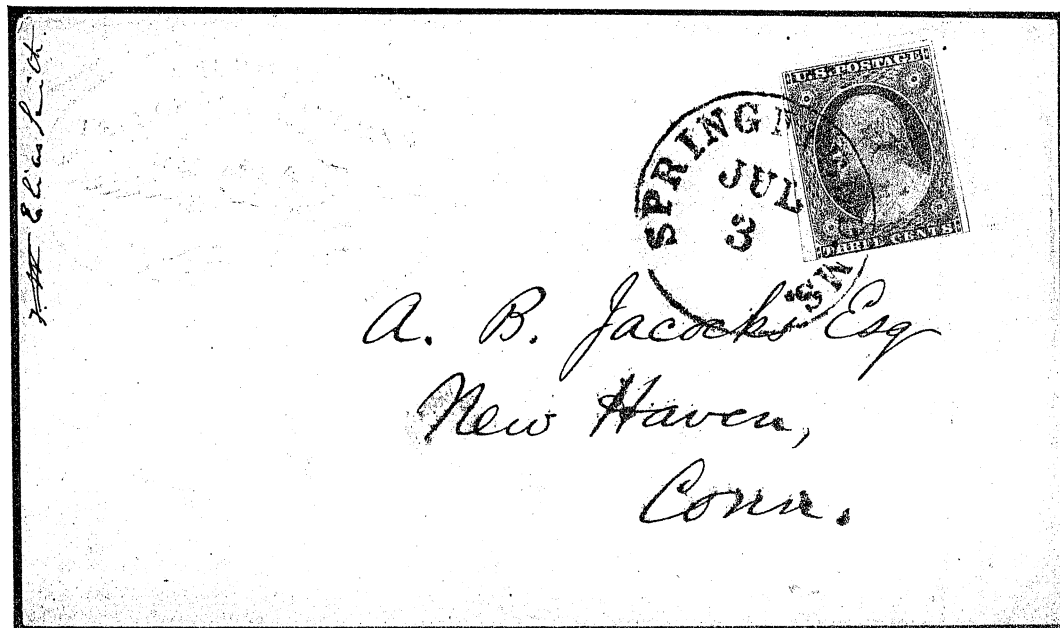 Elias Smith
U.S. POSTAGE
THREE CENTS
SPRING
JUL
3
MS.
A. B. Jacocks Esq
New Haven,
Conn.